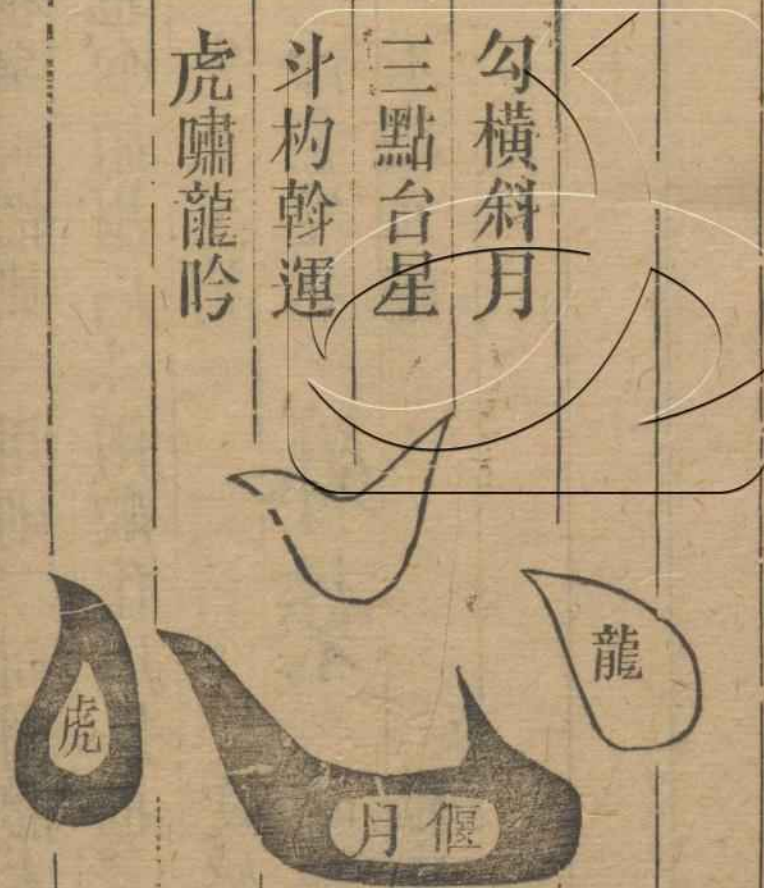 勾橫斜月
三點台星
斗杓斡運
虎嘯龍吟
龍
偃月
虎